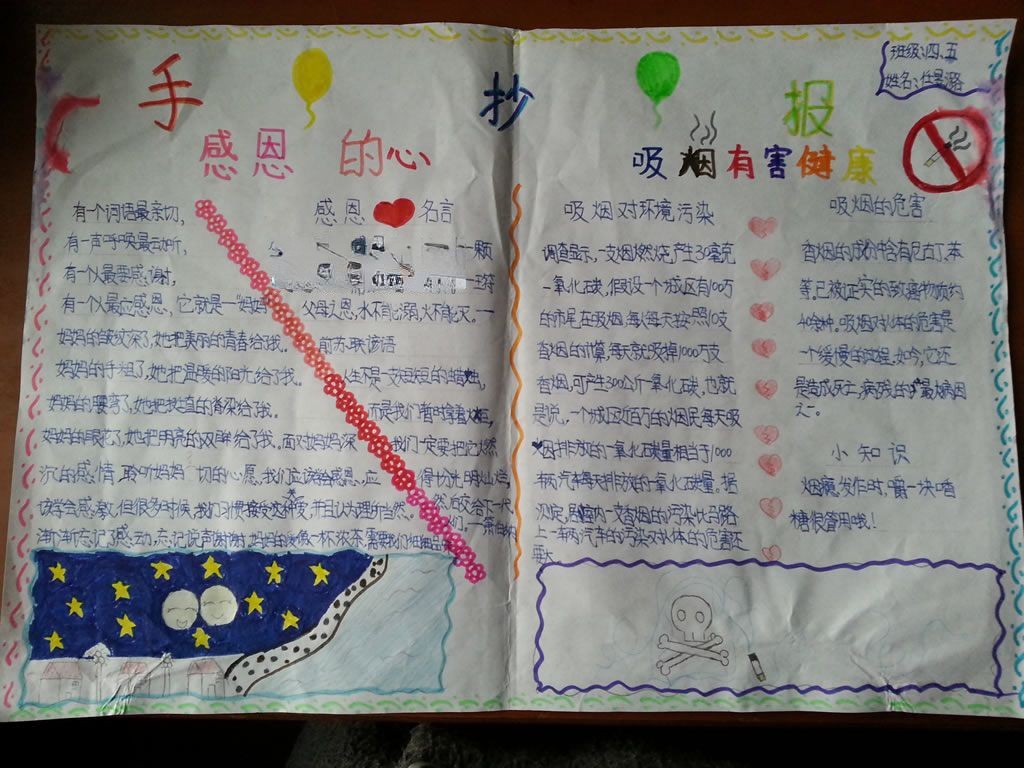 手 抄 报
班级:四、五
姓名:任
感恩 的心
有一个词语最亲切,
有一声呼唤最动听,
有一个人最要感谢,
有一个人最应感恩,它就是—妈妈
妈妈的皱纹深了,她把美丽的青春给了我。
妈妈的手粗了,她把温暖的阳光给了我。
妈妈的腰弯了,她把挺直的脊梁给了我。
妈妈的眼花了,她把明亮的双眸给了我。面对妈妈深
沉的感情,聆听妈妈一切的心愿,我们应该学会感恩、应
该学会感激,但很多时候,我们习惯接受这种爱,并且认为理所当然。
渐渐忘记了感动,忘记说声谢谢,妈妈的爱像一杯浓茶,需要我们细细品味
感恩 名言
一颗
父母之恩,水不能溺,火不能灭。—
前苏联谚语
人生不是一支短短的蜡烛,
而是我们暂时拿着火炬,
我们一定要把它燃
得十分光明灿烂,
然后交给下一代
吸烟有害健康
吸烟对环境污染
调查显示,一支烟燃烧,产生30毫克
一氧化碳,假设一个城区有100万
的市民在吸烟,每人每天按照10支
香烟的计算,每天就吸掉1000万支
香烟,可产生300公斤一氧化碳,也就
是说,一个城区近百万的烟民每天吸
烟排放的一氧化碳量相当于1000
辆汽车每天排放的一氧化碳量。据
测定,居室内一支香烟的污染比马路
上一辆汽车的污染对人体的危害还
要大
吸烟的危害
香烟的成份中含有尼古丁、苯
等,已被证实的致癌物质约
40余种。吸烟对人体的危害是
一个缓慢的过程,如今,它还
是造成死亡,病残的最大病因
之一。
小知识
烟瘾发作时,嚼一块口香
糖很管用哦!